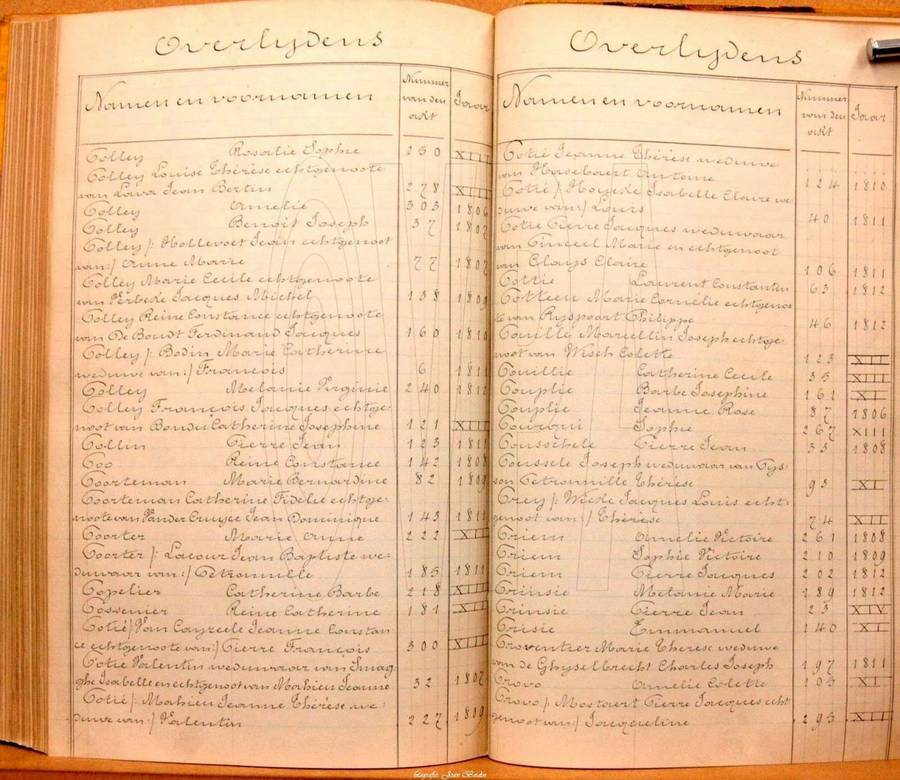 Overlydens
Namen en voornamen
Nummer van den akt
Jaar
Colley Rosalie Sophie 250 XIII
Colley Louise Thérèse echtgenoote
van Lava Jean Bertin 278 XIII
Colley Amelie 303 1806
Colley Benoit Joseph 37 1807
Colley /: Hollevoet Jean echtgenoot
van:/ Anne Marie 77 1807
Colley Marie Cecile echtgenoote
van Verbeke Jacques Michel 138 1809
Colley Reine Constance echtgenoote
van De Boudt Ferdinand Jacques 160 1810
Colley /: Bodin Marie Catherine
weduwe van:/ François 6 1811
Colley Melanie Virginie 240 1812
Colley François Jacques echtge-
noot van Bondu Catherine Josephine 121 XIII
Collin Pierre Jean 123 1811
Coo Reine Constance 142 1808
Coorteman Marie Bernardine 82 1809
Coorteman Catherine Fidéle echtge-
noote van Vander Cruysce Jean Dominique 143 1811
Coorter Marie Anne 222 XII
Coorter /: Lacour Jean Baptiste we-
duwaar van:/ Petronnille 185 1811
Copelier Catherine Barbe 218 XIII
Cossenier Reine Catherine 181 XII
Cotié/Van Cayzeele Jeanne Constan
ce echtgenoote van:/ Pierre François 300 XIII
Cotié Valentin weduwaar van Smag-
ghe Isabelle en echtgenoot van Mahieu Jeanne 32 1807
Cotié /: Mahieu Jeanne Thérèse we-
duwe van:/ Valentin 227 1809
Overlydens
Namen en voornamen
Nummer van den akt
Jaar
Cotié Jeanne Thérèse weduwe
van Hasebaert Antoine 124 1810
Cotié /: Isabelle Claire we-
duwe van:/ Louis 40 1811
Cotié Pierre Jacques weduwaar
van Marie en echtgenoot
van Claijs Claire 106 1811
Cottie Laurent Constantin 63 1812
Cotteen Marie Cornelie echtgenoo
te van Ryspoort Philippe 46 1812
Couille Marcellin Joseph echtge-
noot van Wisch Colette 123 XII
Couillie Catherine Cecile 35 XIII
Couplie Barbe Josephine 161 XI
Couplie Jeanne Rose 87 1806
Courqui Sophie 267 XIII
Coussebele Pierre Jean 35 1808
Coussele Joseph weduwaar van Gys-
son Petronnille Thérèse 93 XI
Crey /: Jacques Louis echt-
genoot van:/ Thérèse 74 XII
Criem Amelie Victoire 261 1808
Criem Sophie Victoire 210 1809
Criem Pierre Jacques 202 1812
Crinsie Melanie Marie 189 1812
Crinsie Pierre Jean 23 XIV
Crisie Emmanuel 140 XI
Croventier Marie Thérèse weduwe
van de Ghyselbrecht Charles Joseph 197 1811
Crovo Amelie Colette 103 XI
Crovo /: Mostaert Pierre Jacques echt
genoot van:/ Jacqueline 293 XII
fotografie: Joan Boidin